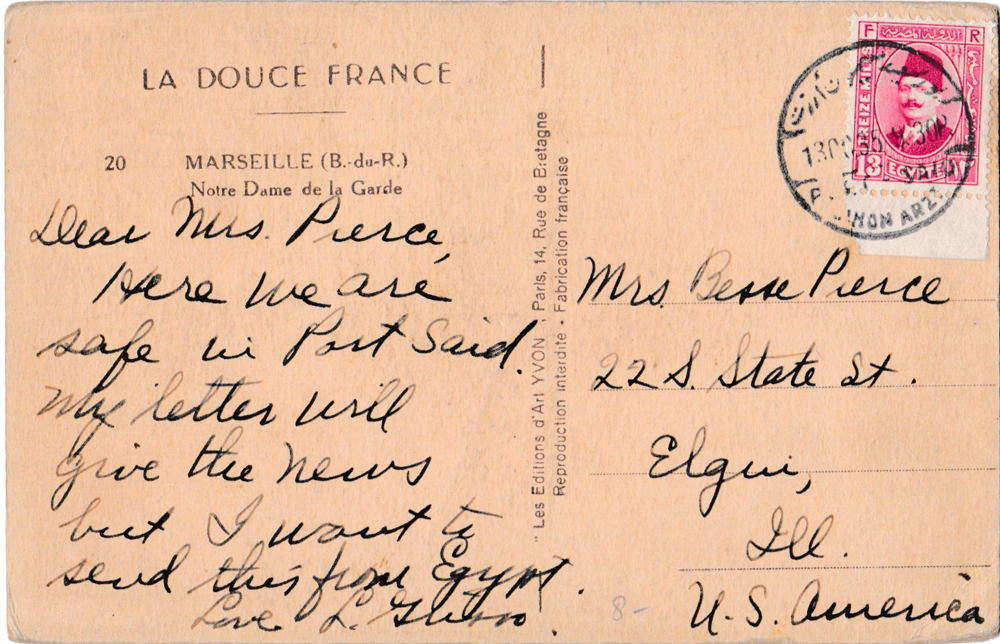 LA DOUCE FRANCE
20 MARSEILLE (B.-du-R.)
Notre Dame de la Garde
Dear Mrs. Pierce,
Here we are
safe in Port Said.
My letter will
give the news
but I want to
send this from Egypt.
Love L.
" Les Editions d'Art YVON " Paris, 14, Rue de Bretagne
Reproduction interdite - Fabrication française
F R
TREIZE MILLS
13
13 35 30P
SAID
Mrs. Besse Pierce
22 S. State St.
Elgin,
Ill.
U.S. America
8-